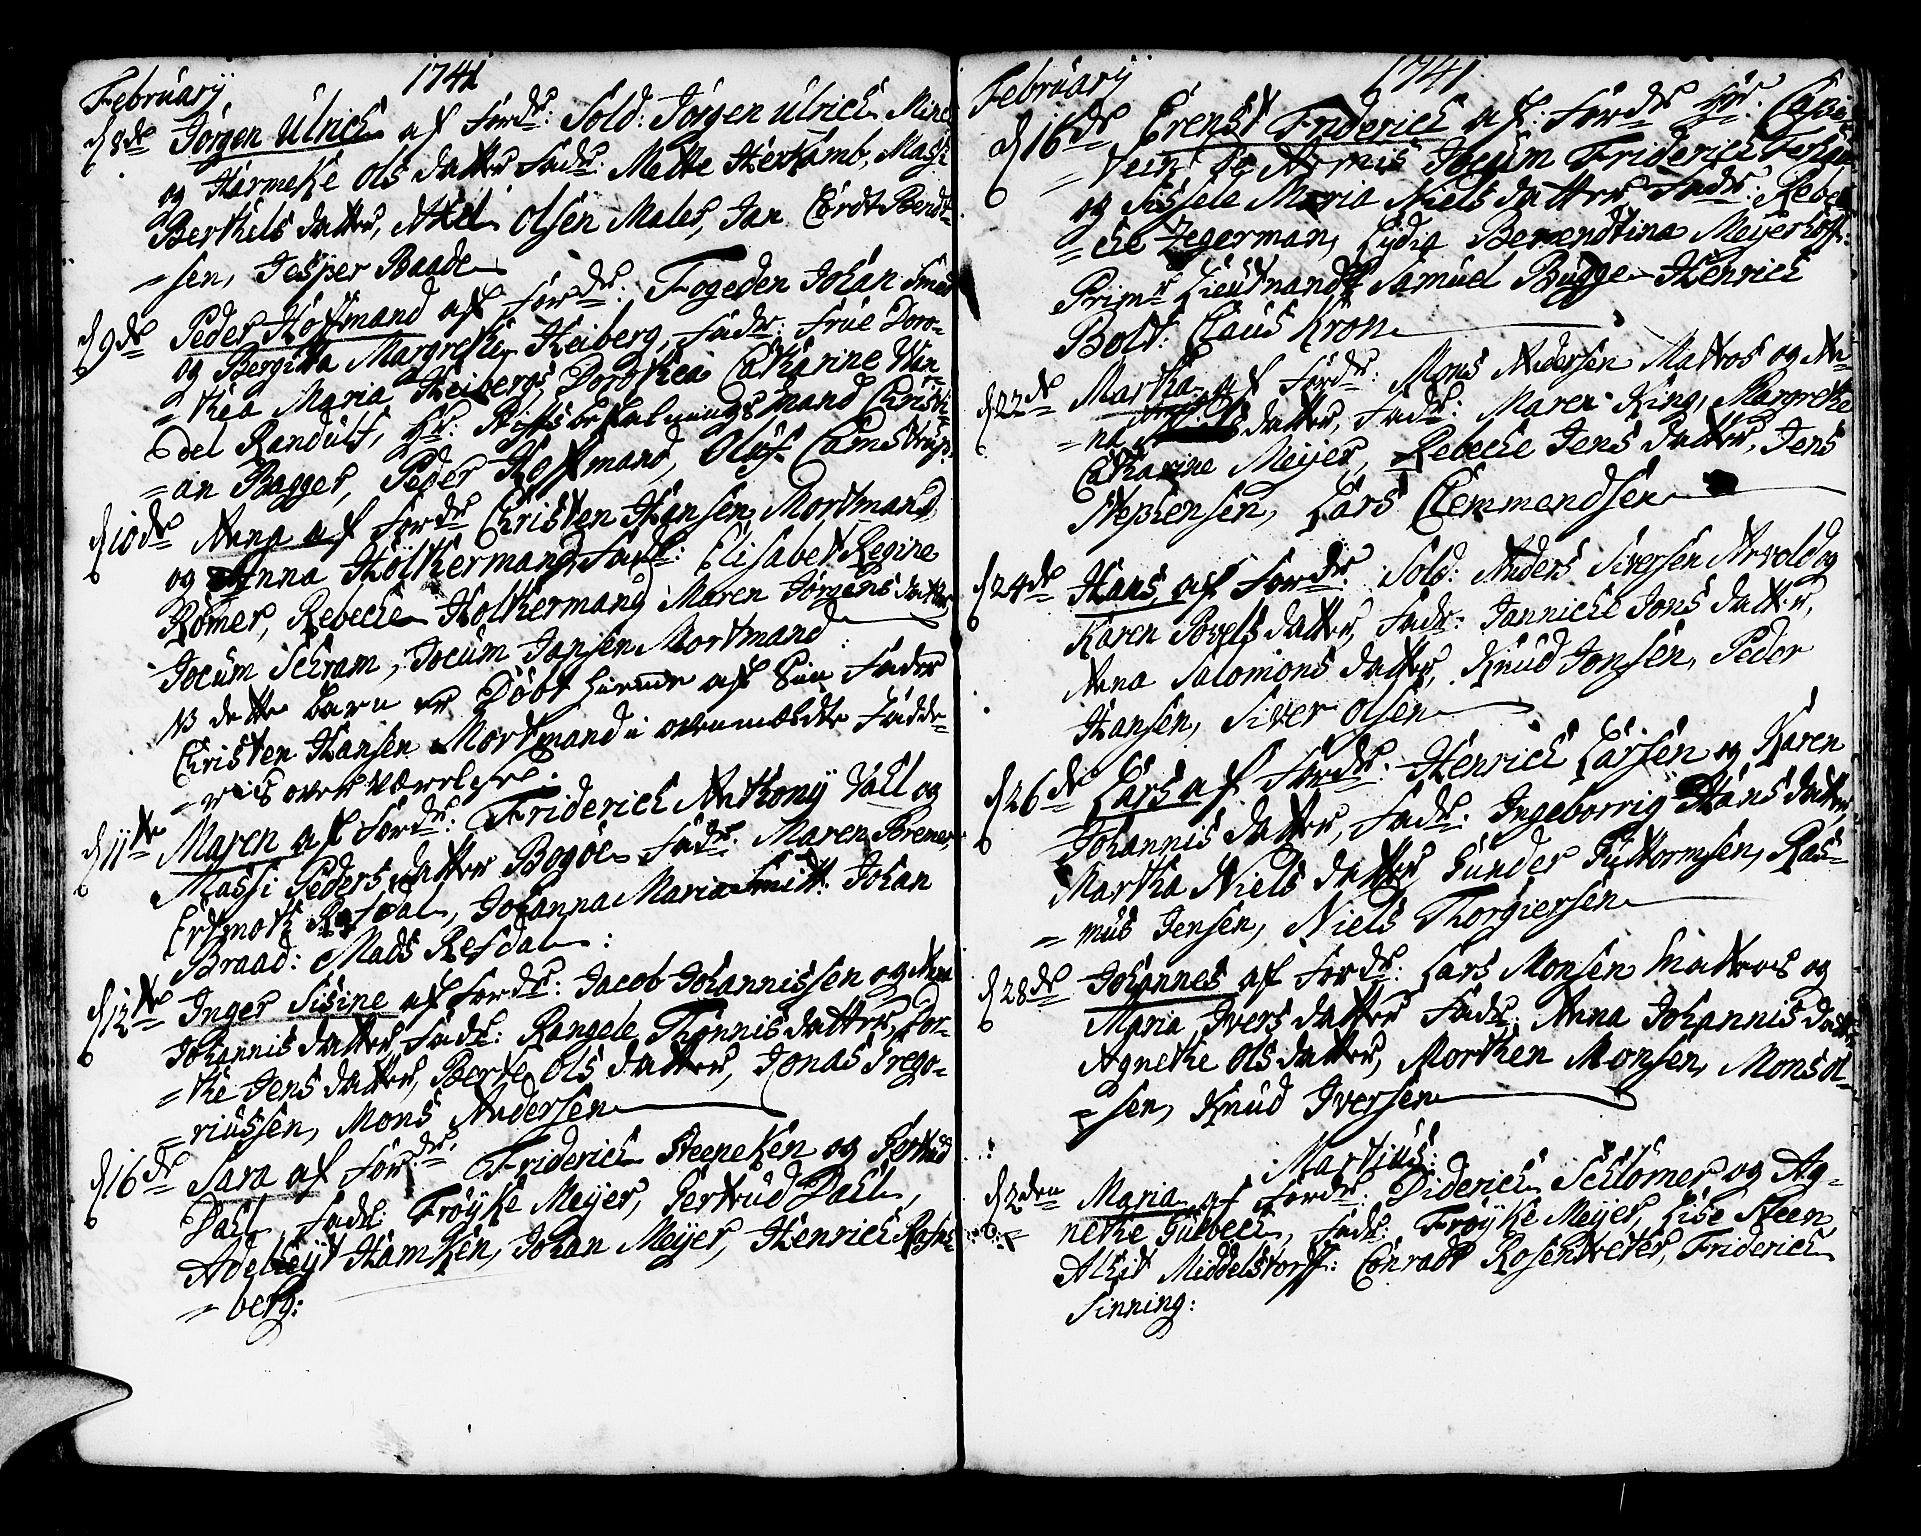 Februarÿ 1741
d 8de Jørgen Ulrich af Fordr: Sold: Jørgen Ulrich Mine
og Harmeke Ols datter Fadr: Mette Herkamb, Magi
Berthels datter, Axel Olsen Maler, Jan Cordt Bendt=
=sen, Jesper Baade
d 9de Peder Hoffmand af Fordr: Fogeden Johan Smed
og Bergitta Margrethe Heiberg, Fadr: Frue Doro=
=thea Maria Heibergs, Dorothea Catharine Win=
del Randulf, Hr: Stiftsbefalningsmand Christi
=an Bagger, Peder Hoffmand, Oluf Camstrup.
d 10de Anna af Fordr Christen Hansen Mortmand,
og Anna Holthermand, Fadr: Elisabet Regine
Rømer, Rebecke Holthermand, Maren Jørgens datter
Jocum Schram, Jocum Jansen Mortmand:
NB dette barn er Døbt hiemme af Sin Fader
Christen Hansen Mortmand i ovenmeldte Fadde=
=ris overværelse.
d 11te Maren af Fordr: Friderich Anthonÿ Vall og
Massi Peders datter Bogøe Fadr: Maren Bremer,
Ertmoth Refdal, Johanna Maria Smitt: Johan
Braad: Mads Refdal:
d 12te Inger Sisine af Fordr: Jacob Johannissen og Anna
Johannis datter, Fadr: Rangele Thønnis datter, Dor=
=the Jens datter, Berte Ols datter, Jonas Grego=
=riussen, Mons Andersen
d 16de Sara af Fordr: Friderich Steeneken og Gertrud
Dahl, Fadr: Frøÿke Meÿer, Gertrud Dahl,
Adelheÿt Hamken, Johan Meÿer, Henrich Rosen
=berg:
Februarÿ 1741
d 16de Erenst Friderich af Fordr Hr. Capit
=Vein de Armis Jocum Friderich
og Sissele Maria Niels datter, Fadr: Rebec
=che Zegerman, Lÿdia Berendtina Meÿerhoff:
Primr Lieutnandt Samuel Bugge Henrich
Bolt: Claus Kron
d 22de Martha af Fordr: Mons Andersen Mattos og An=
=na datter, Fadr: Maren Ring, Margrethe
Catharine Meÿer, Rebecke Jens datter, Jens
Stephensen, Lars Clemmendsen
d 24de Hans, af Fordr: Sold: Anders Siversen Arvold og
Karen Povels datter, Fadr: Janniche Jons datter,
Anna Salomons datter, Knud Jonsen, Peder
Hansen, Siver Olsen
d 26de Lars af Fordr: Henrich Larsen og Karen
Johannis datter, Fadr: Ingeborrig Hans datter,
Martha Niels datter, Gunder Guttormsen, Ras=
=mus Jensen, Niels Thorgiersen
d 28de Johannes af Fordr: Lars Monsen Mattos og
Maria Ivers datter Fadr: Anna Johannis datter
Agnethe Ols datter, Morthen Monsen, Mons Ol=
=sen, Knud Iversen
Martius:
d 2den Maria af Fordr: Diderich Schlømer og Ag=
nethe Gulbech, Fadr: Frøÿke Meÿer, Lise Steen,
Alhit Middelstorff: Conradt Rosentreter, Friderich
Sinning: